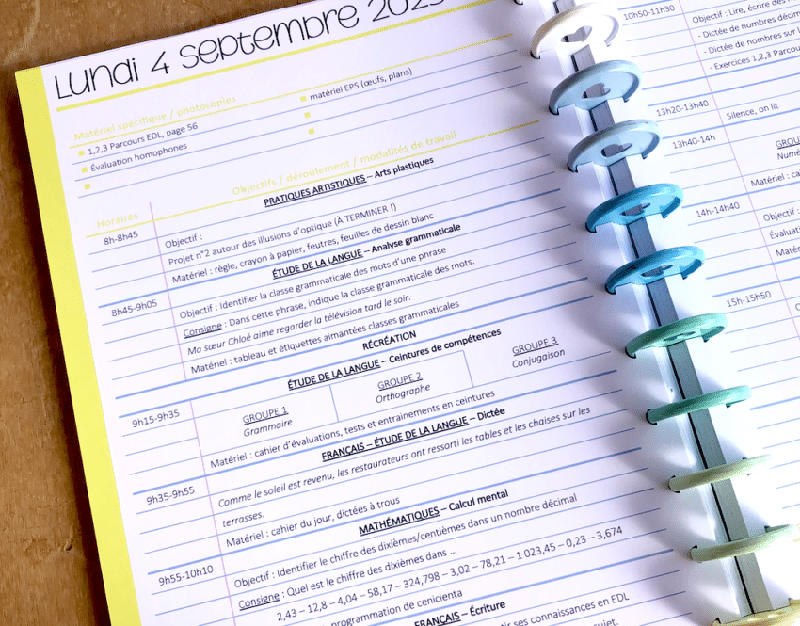 Lundi 4 septembre 2023
Matériel spécifique / photocopies
1,2,3 Parcours EDL, page 56
matériel EPS (œufs, plans)
Évaluation homophones
Horaires
Objectifs / déroulement / modalités de travail
PRATIQUES ARTISTIQUES – Arts plastiques
8h-8h45
Objectif :
Projet n°2 autour des illusions d'optique (À TERMINER !)
Matériel : règle, crayon à papier, feutres, feuilles de dessin blanc
ÉTUDE DE LA LANGUE – Analyse grammaticale
8h45-9h05
Objectif : Identifier la classe grammaticale des mots d'une phrase
Consigne : Dans cette phrase, indique la classe grammaticale des mots.
Ma sœur Chloé aime regarder la télévision tard le soir.
Matériel : tableau et étiquettes aimantées classes grammaticales
RÉCRÉATION
ÉTUDE DE LA LANGUE - Ceintures de compétences
9h15-9h35
GROUPE 1
Grammaire
GROUPE 2
Orthographe
GROUPE 3
Conjugaison
Matériel : cahier d'évaluations, tests et entrainements en ceintures
FRANÇAIS – ÉTUDE DE LA LANGUE – Dictée
9h35-9h55
Comme le soleil est revenu, les restaurateurs ont ressorti les tables et les chaises sur les
terrasses.
Matériel : cahier du jour, dictées à trous
MATHÉMATIQUES – Calcul mental
9h55-10h10
Objectif : Identifier le chiffre des dixièmes/centièmes dans un nombre décimal
Consigne : Quel est le chiffre des dixièmes dans ...
2,43 – 12,8 – 4,04 – 58,17 – 324,798 – 3,02 – 78,21 – 1 023,45 – 0,23 – 3,674
programmation de cenicienta
FRANÇAIS – Écriture
ses connaissances en EDL
sujet.
10h50-11h30
Objectif : Lire, écrire des
- Dictée de nombres décim
- Dictée de nombres sur l
- Exercices 1,2,3 Parcours
13h20-13h40
Silence, on li
13h40-14h
GROU
Numé
Matériel : cah
14h-14h40
Objectif
Évaluati
Matéri
15h-15h60
Obj
Mat